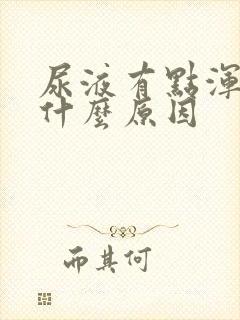 尿液有點渾
什麼原因
而其何